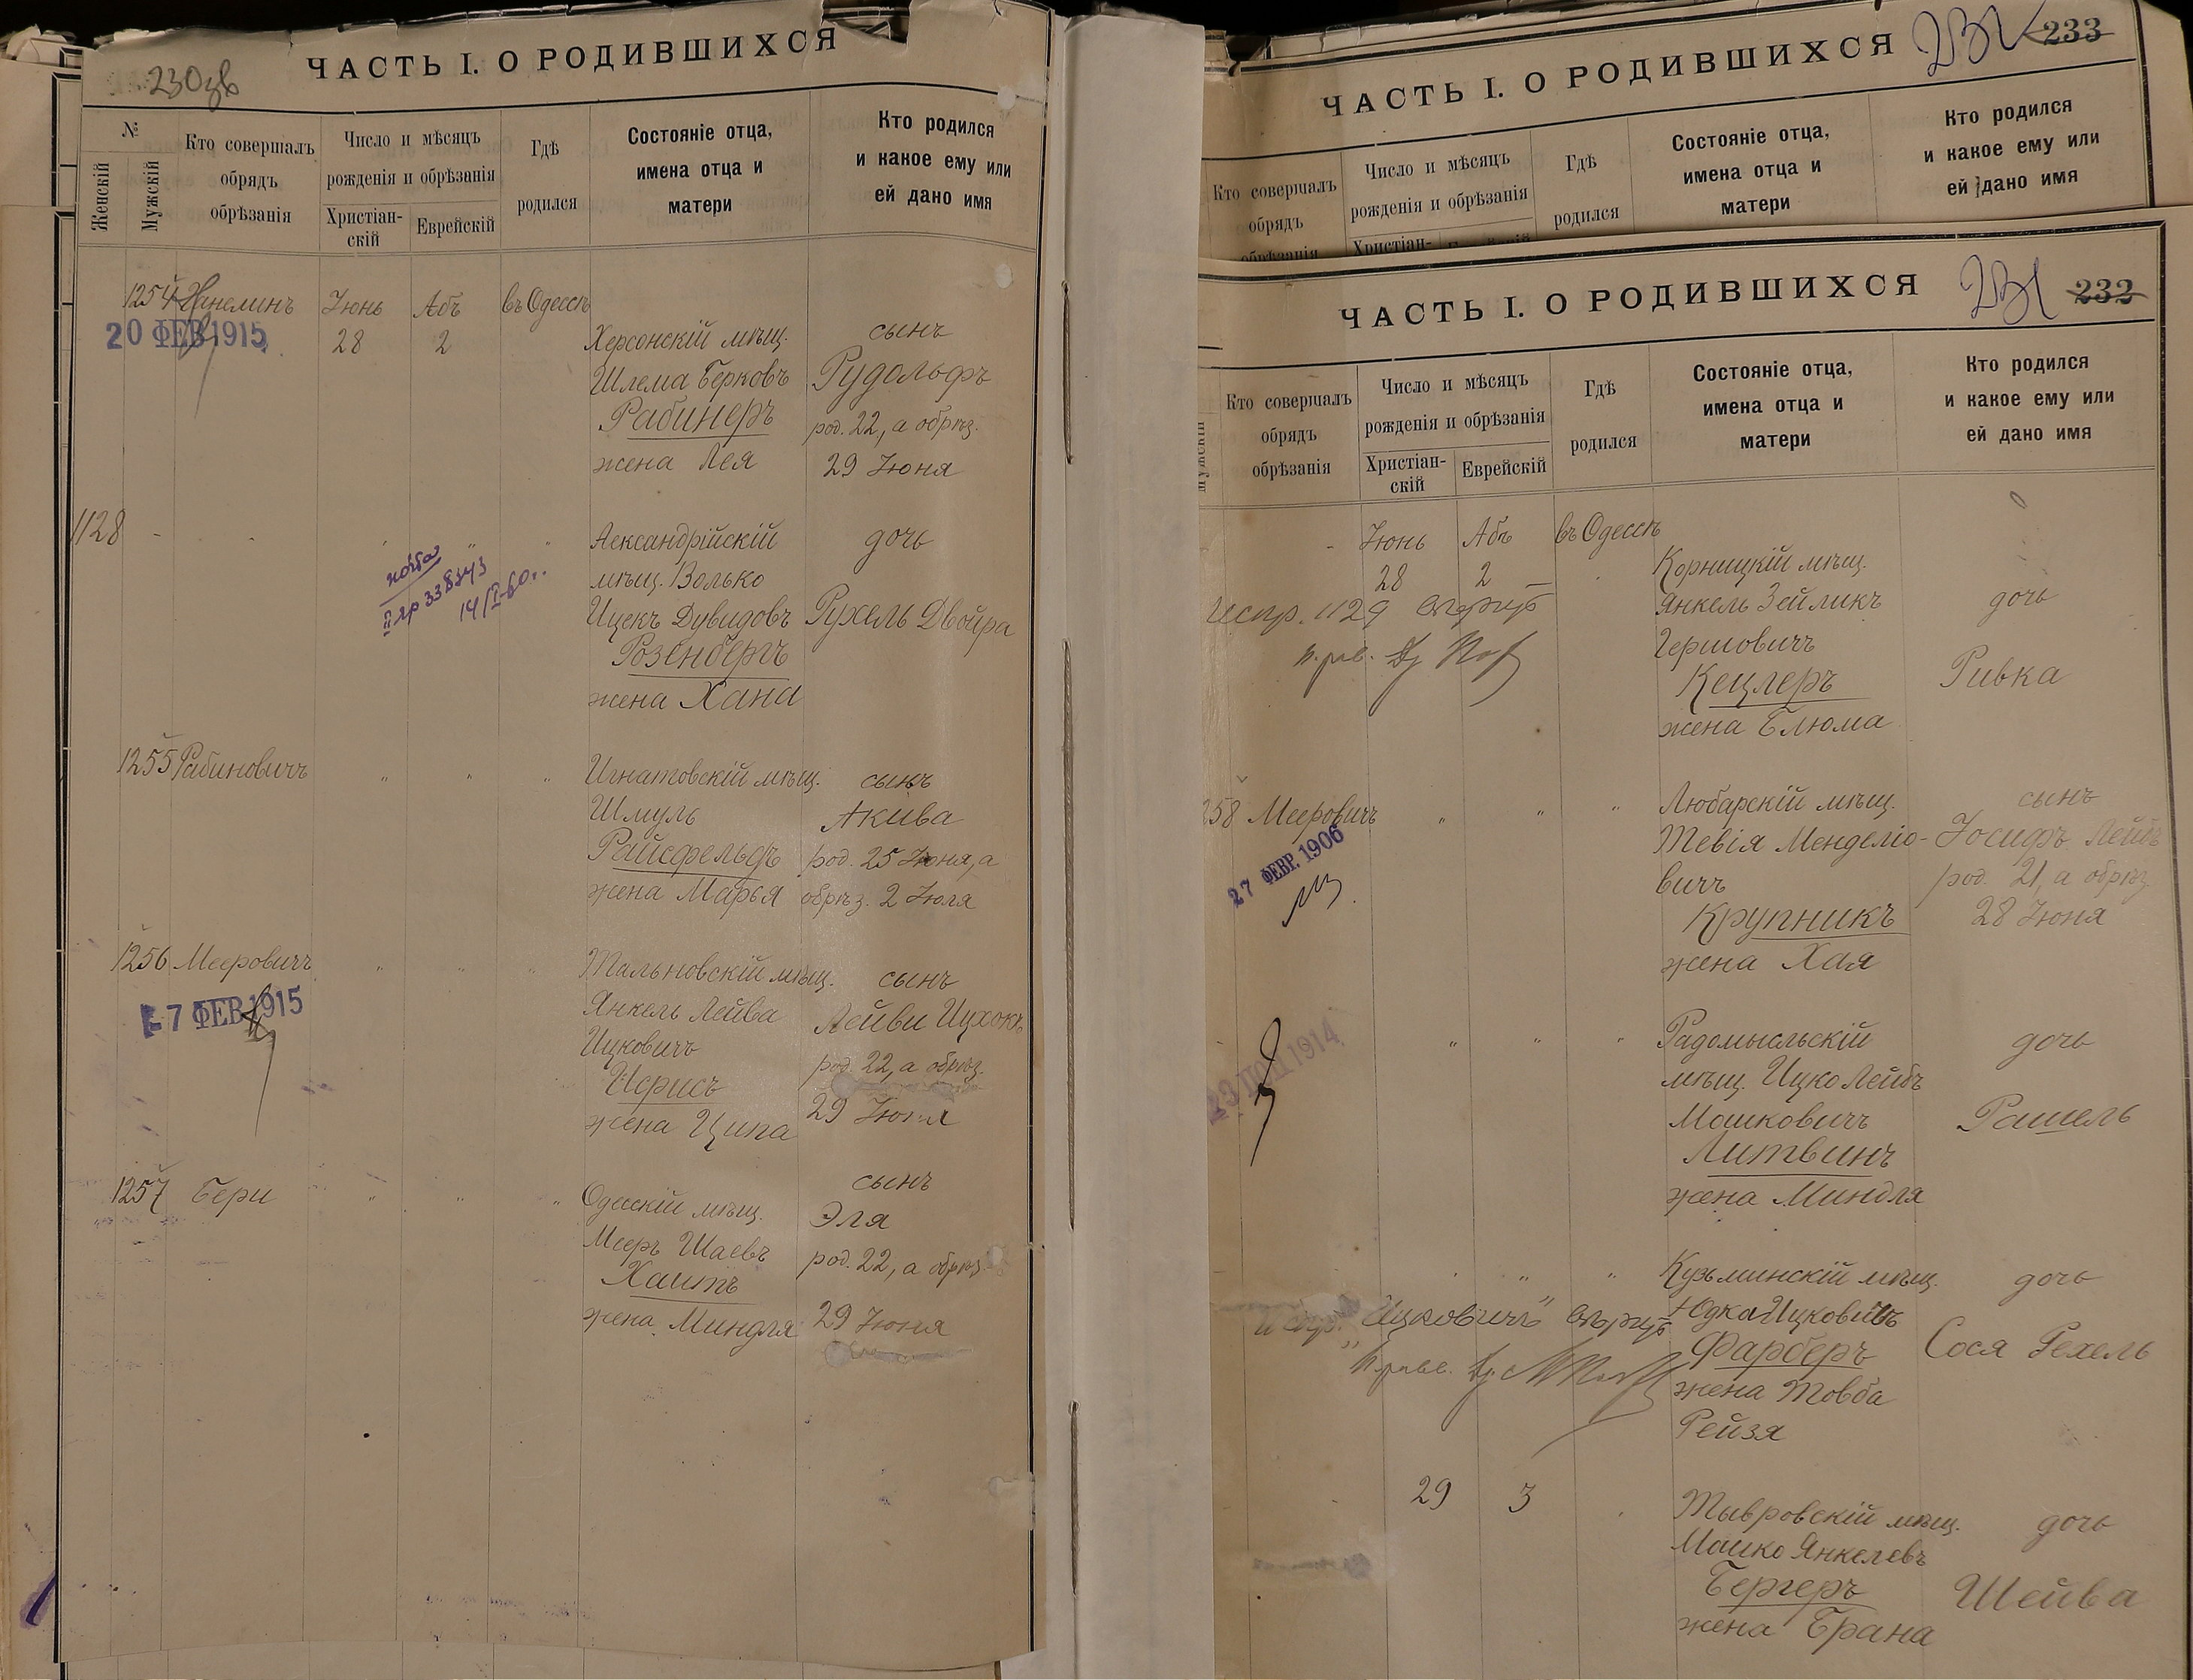 230зв
ЧАСТЬ I. О РОДИВШИХСЯ
№
Женскій
Мужскій
Кто совершалъ
обрядъ
обрѣзанія
Число и мѣсяцъ
рожденія и обрѣзанія
Христіан-
скій
Еврейскій
Гдѣ
родился
Состояніе отца,
имена отца и
матери
Кто родился
и какое ему или
ей дано имя
1254 Ханелинъ Іюнь Абъ въ Одессѣ
20 ФЕВ 1915
28 2
Херсонскій мѣщ.
Шлема Берковъ
Рабинеръ
жена Лея
сынъ
Рудольфъ
род. 22, а обрѣз.
29 Іюня
1128 - - " " "
14/I-60г.
Александрійскій
мѣщ. Волько
Ицекъ Дувидовъ
Розенбергъ
жена Хана
дочь
Рухель Двойра
1255 Рабиновичъ " " "
Игнатовскій мѣщ.
Шмуль
Райсфельдъ
жена Марья
сынъ
Акива
род. 25 Іюня, а
обрѣз. 2 Іюля
1256 Мееровичъ " " "
7 ФЕВ 1915
Тальновскій мѣщ.
Янкель Лейва
Ицковичъ
Ифрисъ
жена Ципа
сынъ
Лейви Ицхокъ
род. 22, а обрѣз.
29 Іюня
1257 Бери " " "
Одесскій мѣщ.
Мееръ Шаевъ
Хаитъ
жена Миндля
сынъ
Эля
род. 22, а обрѣз.
29 Іюня
ЧАСТЬ I. О РОДИВШИХСЯ
231 233
Кто совершалъ
обрядъ
обрѣзанія
Число и мѣсяцъ
рожденія и обрѣзанія
Христіан-
Гдѣ
родился
Состояніе отца,
имена отца и
матери
Кто родился
и какое ему или
ей дано имя
ЧАСТЬ I. О РОДИВШИХСЯ
231 232
Мужскій
Кто совершалъ
обрядъ
обрѣзанія
Число и мѣсяцъ
рожденія и обрѣзанія
Христіан-
скій
Еврейскій
Гдѣ
родился
Состояніе отца,
имена отца и
матери
Кто родился
и какое ему или
ей дано имя
- Іюнь Абъ въ Одессѣ
28 2
Испр. 1129
Корницкій мѣщ.
Янкель Зейликъ
Гершовичъ
Кецлеръ
жена Блюма
дочь
Ривка
258 Мееровичъ " " "
27 ФЕВР. 1906
Любарскій мѣщ.
Тевія Менделіо-
вичъ
Крупникъ
жена Хая
сынъ
Іосифъ Лейбъ
род. 21, а обрѣз.
28 Іюня
" " "
1914
Радомысльскій
мѣщ. Ицко Лейбъ
Мошковичъ
Литвинъ
жена Миндля
дочь
Рашель
" " "
Испр. "Ицковичъ"
Кузьминскій мѣщ.
Юдка Ицковичъ
Фарберъ
жена Товба
Рейзя
дочь
Сося Рехель
29 3
Тывровскій мѣщ.
Мошко Янкелевъ
Бергеръ
жена Брана
дочь
Шейва